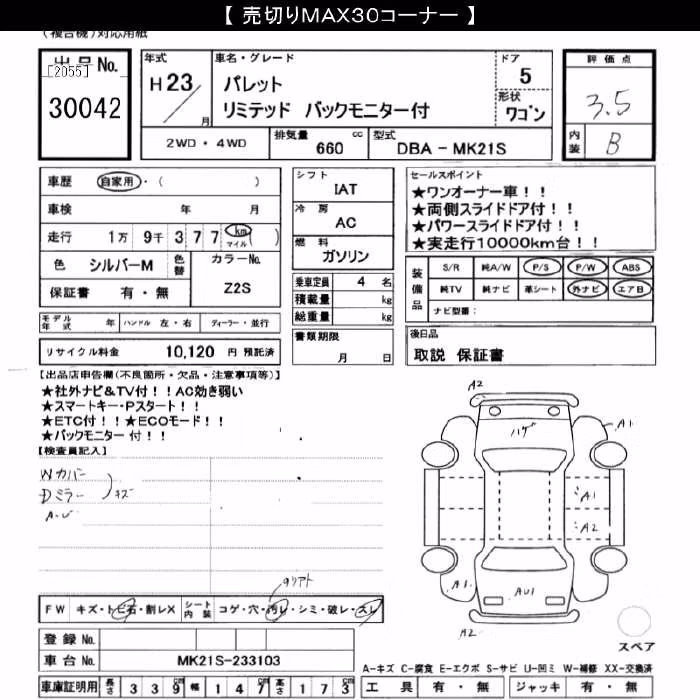 【 売切りMAX30コーナー 】
(複合機)対応用紙
出品No.
[2055]
30042
年式
H23/ 月
車名・グレード
パレット
リミテッド バックモニター付
ドア
5
形状
ワゴン
評価点
3.5
内装
B
2WD・4WD
排気量
660 cc
型式
DBA - MK21S
車歴 自家用・( )
車検 年 月
走行 1万 9千 3 7 7 km マイル ( )
色 シルバーM 色替
カラーNo.
Z2S
保証書 有・無
シフト
IAT
冷房
AC
燃料
ガソリン
セールスポイント
★ワンオーナー車!!
★両側スライドドア付!!
★パワースライドドア付!!
★実走行10000km台!!
乗車定員 4 名
積載量 kg
総重量 kg
装備品
S/R 純A/W P/S P/W ABS
純TV 純ナビ 革シート 外ナビ エアB
ナビ型番:
モデル年式 年 ハンドル 左・右 ディーラー・並行
リサイクル料金 10,120 円 預託済
書類期限
月 日
後日品
取説 保証書
【出品店申告欄(不良箇所・欠品・注意事項等)】
★社外ナビ&TV付!!AC効き弱い
★スマートキー・Pスタート!!
★ETC付!!★ECOモード!!
★バックモニター 付!!
【検査員記入】
Wカバー
Dミラー
キズ
A.U
A2
ハゲ
A1
A1
A2
A1
AU1
A2
クリアト
FW キズ・トビ石・割レX
シート内装 コゲ・穴・汚レ・シミ・破レ・スレ
登録 No.
車台 No. MK21S-233103
スペア
A-キズ C-腐食 E-エクボ S-サビ U-凹ミ W-補修 XX-交換済
車庫証明用 長さ 3 3 9 cm 幅 1 4 7 cm 高さ 1 7 3 cm
工具 有・無 ジャッキ 有・無